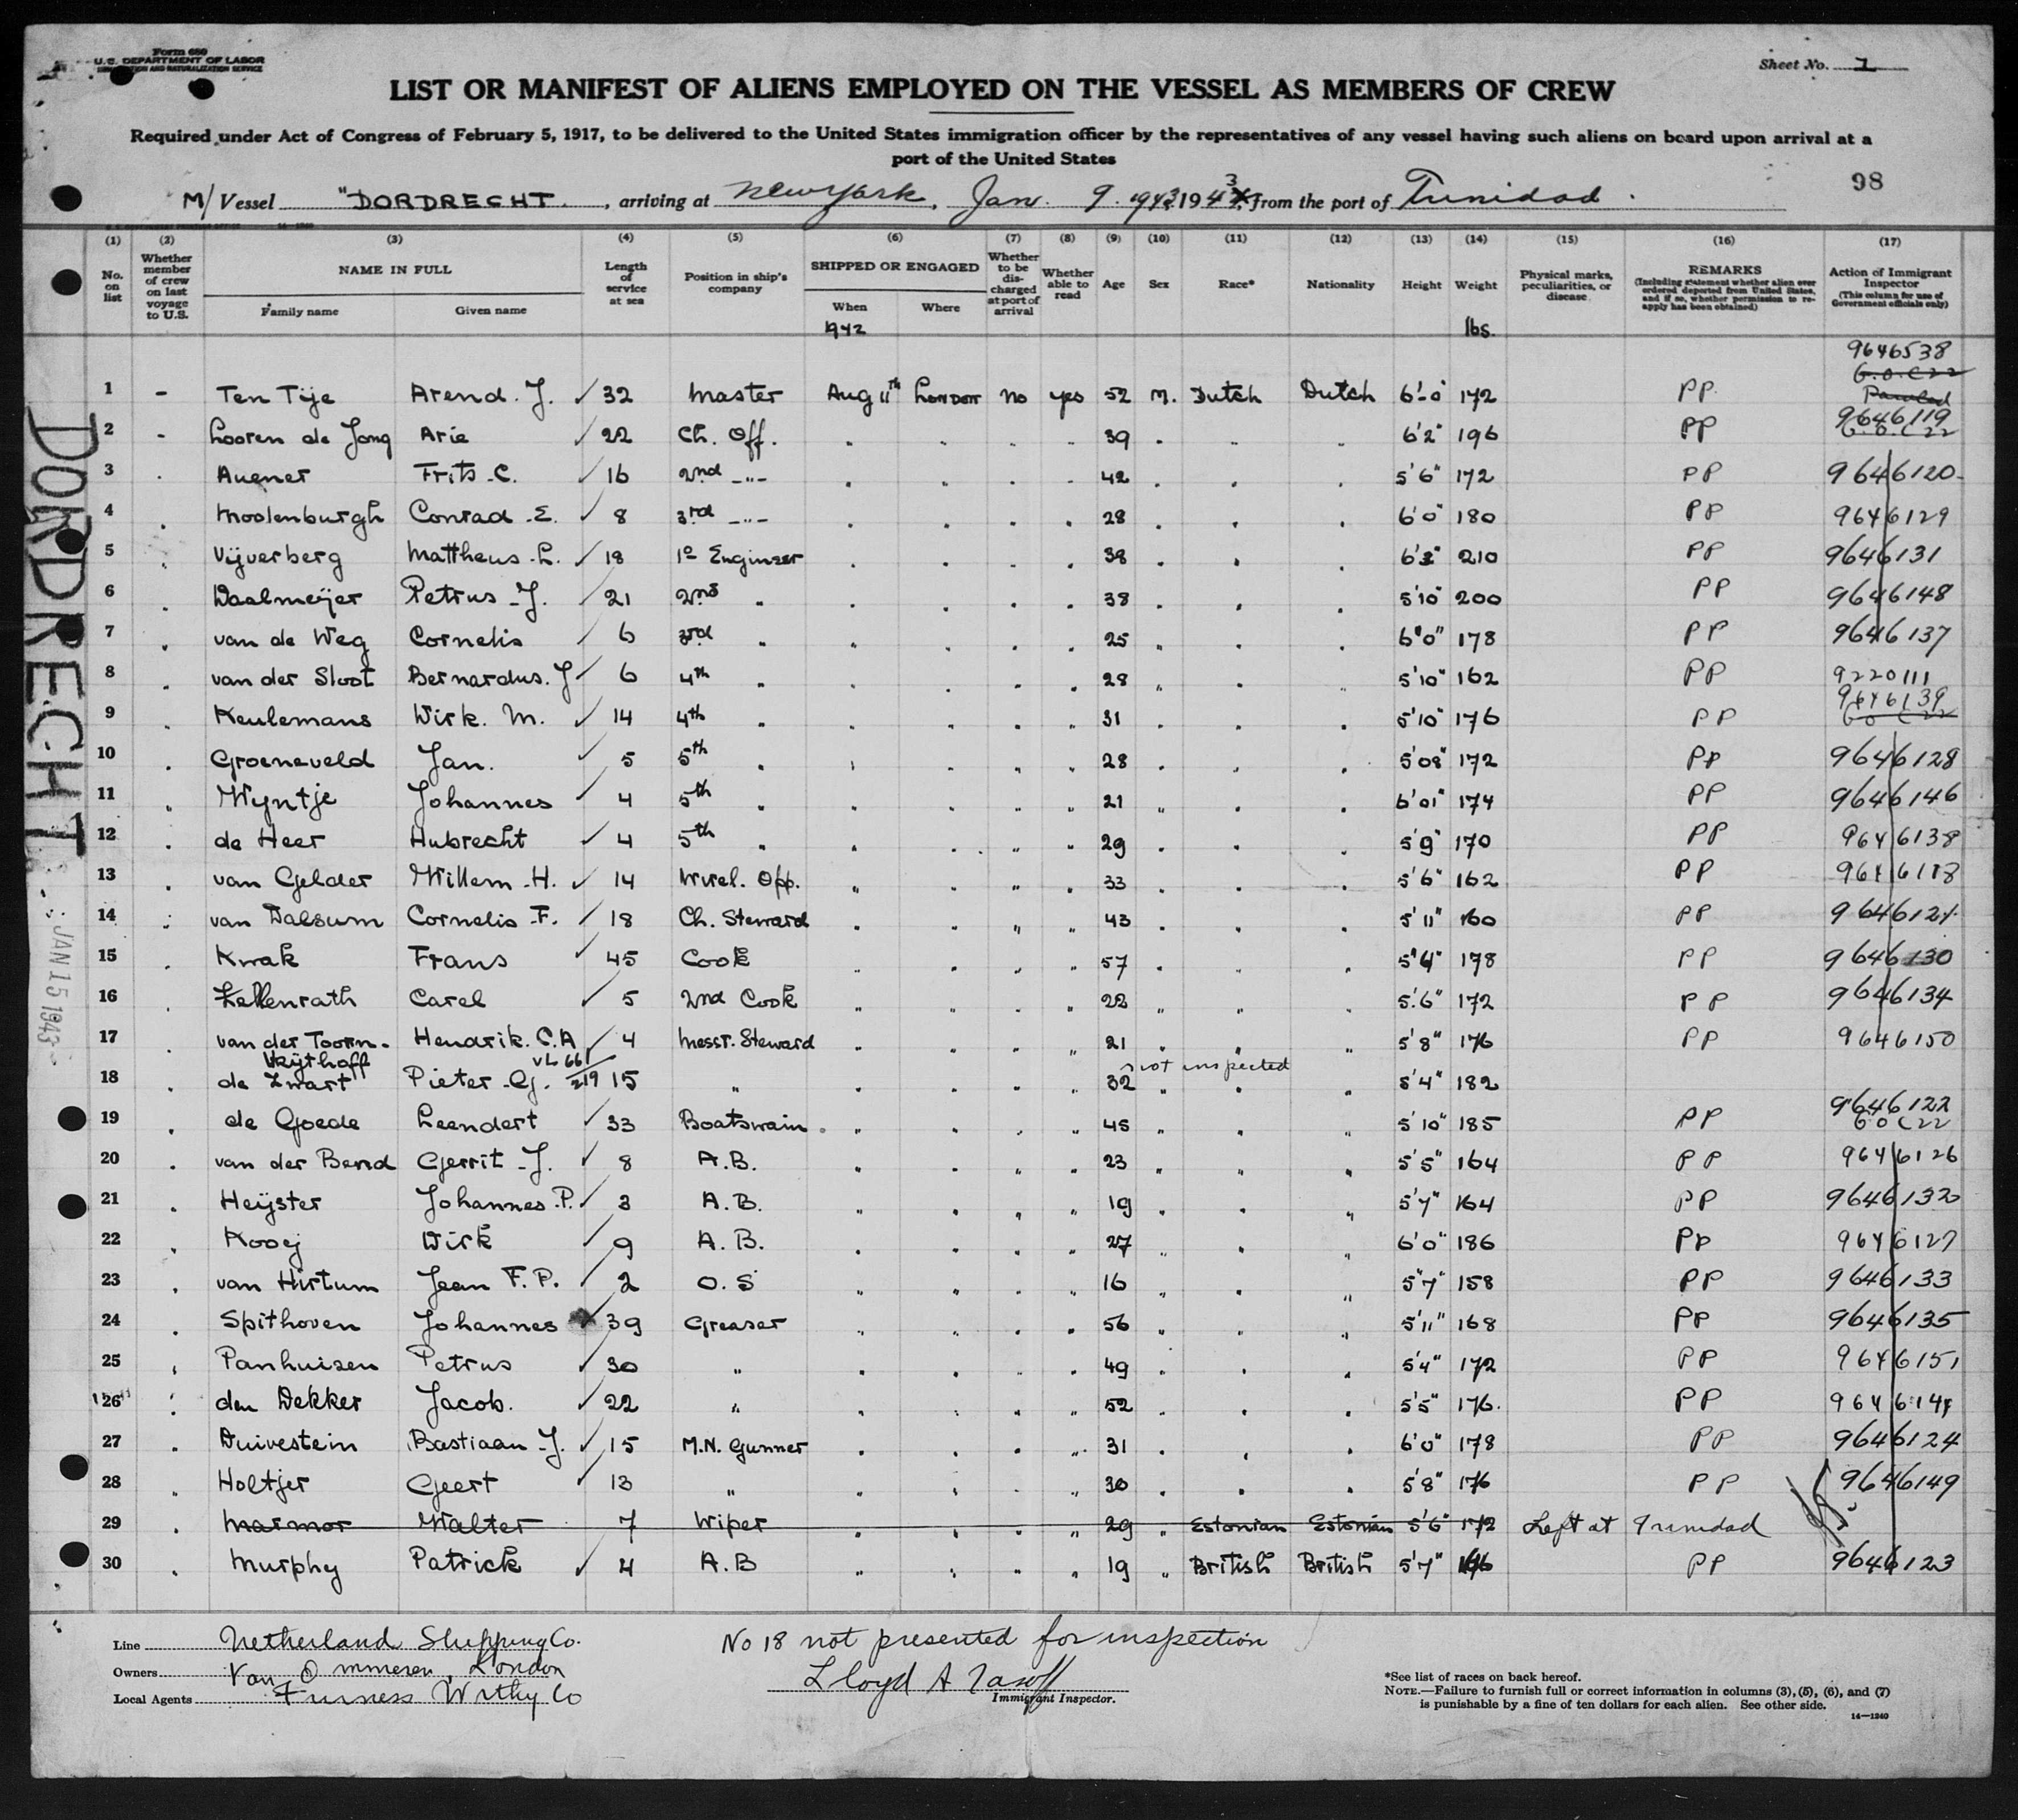 Form 680
U.S. DEPARTMENT OF LABOR
IMMIGRATION AND NATURALIZATION SERVICE
Sheet No. 1
LIST OR MANIFEST OF ALIENS EMPLOYED ON THE VESSEL AS MEMBERS OF CREW
Required under Act of Congress of February 5, 1917, to be delivered to the United States immigration officer by the representatives of any vessel having such aliens on board upon arrival at a
port of the United States
98
M/ Vessel "DORDRECHT, arriving at New York, Jan. 9. 1943, 1943, from the port of Trinidad.
(1) (2) (3) (4) (5) (6) (7) (8) (9) (10) (11) (12) (13) (14) (15) (16) (17)
No. on list
Whether member of crew on last voyage to U.S.
NAME IN FULL
Family name Given name
Length of service at sea
Position in ship's company
SHIPPED OR ENGAGED
When Where
1942
Whether to be discharged at port of arrival
Whether able to read
Age
Sex
Race*
Nationality
Height
Weight
lbs.
Physical marks, peculiarities, or disease
REMARKS
(Including statement whether alien ever ordered deported from United States, and if so, whether permission to reapply has been obtained)
Action of Immigrant Inspector
(This column for use of Government officials only)
9646538
1 - Ten Tije Arend. J. ✓ 32 Master Aug 11th London No yes 52 M. Dutch Dutch 6'-0 172 PP. Paroled
2 - Looren de Jong Arie ✓ 22 Ch. Off. . . . . 39 . . . 6'2" 196 PP 9646119
3 . Auener Frits C. ✓ 16 2nd -"- . . . . 42 . . . 5'6" 172 PP 9646120
4 . Moolenburgh Conrad E. ✓ 8 3rd -"- . . . . 28 . . . 6'0" 180 PP 9646129
5 . Vijverberg Mattheus L. ✓ 18 1e Engineer . . . . 38 . . . 210 PP 9646131
6 . Daalmeijer Petrus J. ✓ 21 2nd " . . . . 38 . . . 5'10" 200 PP 9646148
7 . van de Weg Cornelis ✓ 6 3rd " . . . . 25 . . . 6'0" 178 PP 9646137
8 . van der Sloot Bernardus. J ✓ 6 4th " . . . . 28 . . . 5'10" 162 PP 9220111
9 . Keulemans Dirk. M. ✓ 14 4th " . . . . 31 . . . 5'10" 176 PP 9646139
10 . Groeneveld Jan. ✓ 5 5th " . . . . 28 . . . 5'08" 172 PP 9646128
11 . Wyntje Johannes ✓ 4 5th " . . . . 21 . . . 6'01" 174 PP 9646146
12 . de Heer Hubrecht ✓ 4 5th " . . . . 29 . . . 5'9" 170 PP 9646138
13 . van Gelder Willem H. ✓ 14 Wirel. Opp. . . . . 33 . . . 5'6" 162 PP 9646118
14 . van Dalsum Cornelis F. ✓ 18 Ch. Steward . . . . 43 . . . 5'11" 160 PP 9646121
15 . Kwak Frans ✓ 45 Cook . . . . 57 . . . 5'4" 178 PP 9646130
16 . Zellenrath Carel ✓ 5 2nd Cook . . . . 22 . . . 5'6" 172 PP 9646134
17 . van der Toorn- Vrijthoff Hendrik. C.A ✓ 4 Messr. Steward . . . . 21 . . . 5'8" 176 PP 9646150
not inspected
18 . de Zwart Pieter G. 15 " . . . . 32 . . . 5'4" 182
19 . de Goede Leendert ✓ 33 Boatswain . . . . 45 . . . 5'10" 185 PP 9646122
20 . van der Bend Gerrit J. ✓ 8 A.B. . . . . 23 . . . 5'5" 164 PP 9646126
21 . Heijster Johannes P. ✓ 3 A.B. . . . . 19 . . . 5'7" 164 PP 9646132
22 . Kooij Dirk ✓ 9 A.B. . . . . 27 . . . 6'0" 186 PP 9646127
23 . van Hirtum Jean F.P. ✓ 2 O.S . . . . 16 . . . 5'7" 158 PP 9646133
24 . Spithoven Johannes ✓ 39 Greaser . . . . 56 . . . 5'11" 168 PP 9646135
25 . Panhuisen Petrus ✓ 30 " . . . . 49 . . . 5'4" 172 PP 9646151
26 . den Dekker Jacob. ✓ 22 " . . . . 52 . . . 5'5" 176. PP
27 . Duivestein Bastiaan J. ✓ 15 M.N. Gunner . . . . 31 . . . 6'0" 178 PP 9646124
28 . Holtjer Geert ✓ 13 " . . . . 30 . . . 5'8" 176 PP 9646149
29 . Marmor Walter 7 Wiper . . . . 29 . Estonian Estonian 5'6" 172 Left at Trinidad
30 . Murphy Patrick ✓ 4 A.B . . . . 19 . British British 5'7" PP 9646123
DORDRECHT
JAN 15 1943
Line Netherland Shipping Co.
Owners Van Ommeren, London
Local Agents Furness Withy Co
No 18 not presented for inspection
Lloyd A
Immigrant Inspector.
*See list of races on back hereof.
NOTE.—Failure to furnish full or correct information in columns (3), (5), (6), and (7)
is punishable by a fine of ten dollars for each alien. See other side.
14—1240